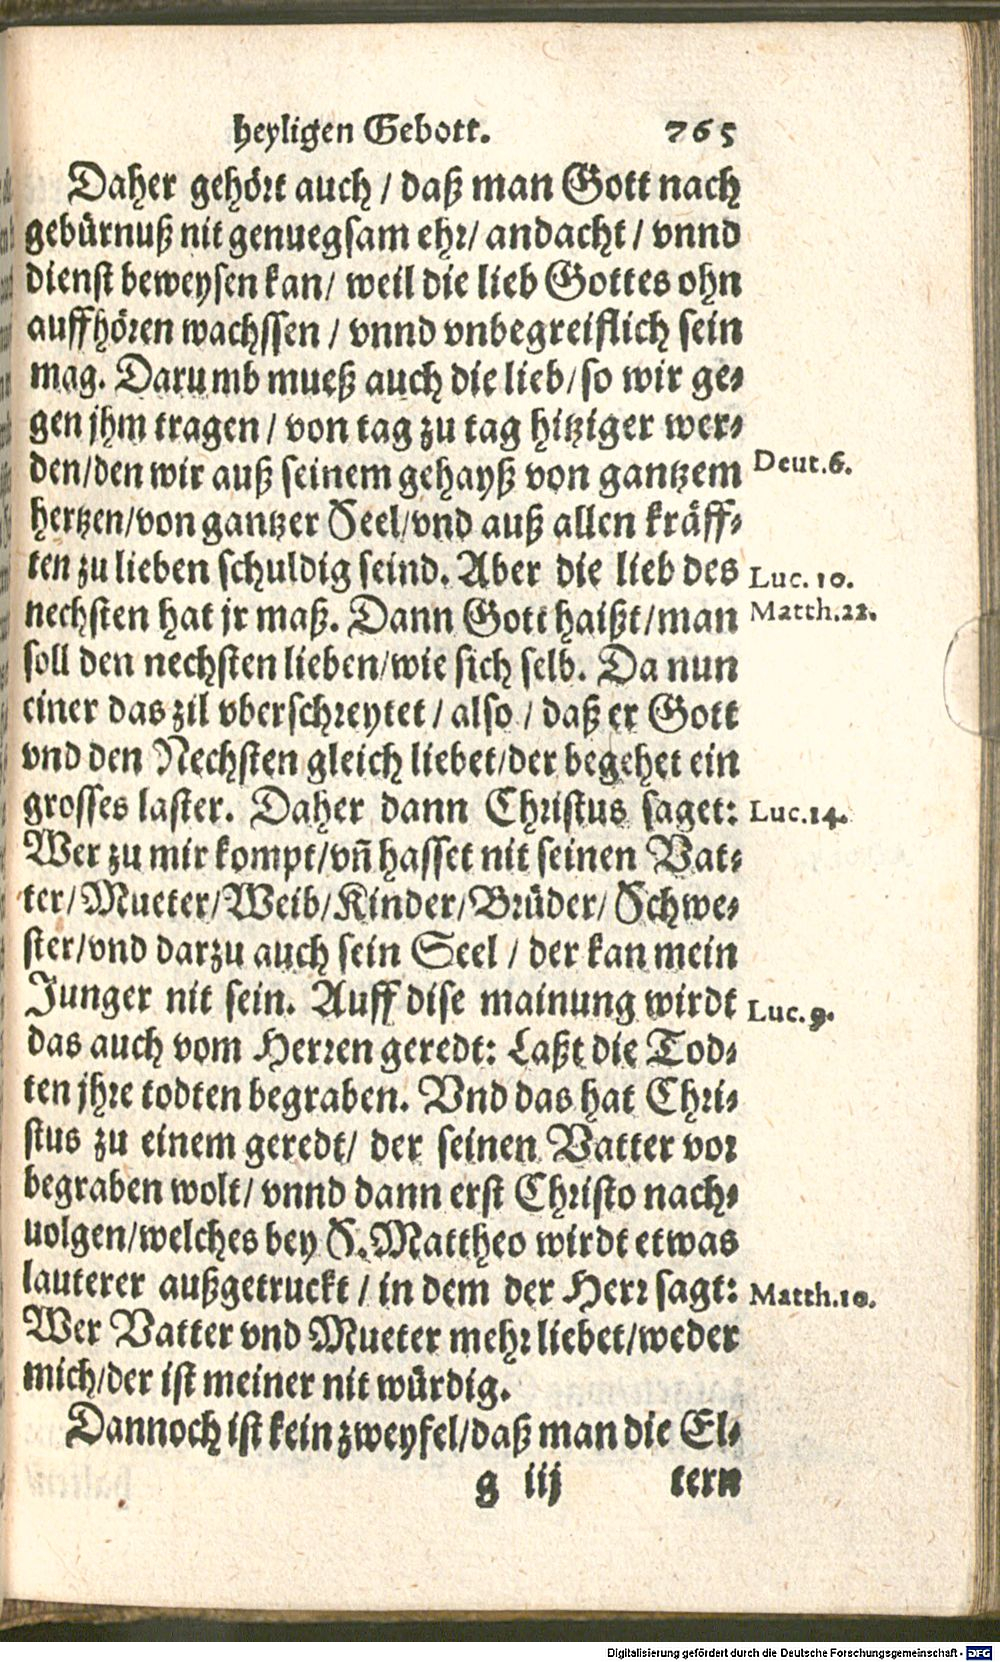 heyligen Gebott. 765
Daher gehört auch / daß man Gott nach
gebürnuß nit genuegsam ehr/ andacht / vnnd
dienst beweysen kan/ weil die lieb Gottes ohn
auffhören wachssen / vnnd vnbegreiflich sein
mag. Darumb mueß auch die lieb/ so wir ge-
gen jhm tragen / von tag zu tag hitziger wer-
den/den wir auß seinem gehayß von gantzem
Deut.6.
hertzen/von gantzer Seel/vnd auß allen kräff-
ten zu lieben schuldig seind. Aber die lieb des
Luc. 10.
nechsten hat jr maß. Dann Gott haißt/man
Matth.22.
soll den nechsten lieben/wie sich selb. Da nun
einer das zil vberschreytet / also / daß er Gott
vnd den Nechsten gleich liebet/der begehet ein
grosses laster. Daher dann Christus saget:
Luc.14.
Wer zu mir kompt/vñ hasset nit seinen Vat-
ter/Mueter/Weib/Kinder/Brüder/ Schwe-
ster/vnd darzu auch sein Seel / der kan mein
Junger nit sein. Auff dise mainung wirdt
Luc. 9.
das auch vom Herren geredt: Laßt die Tod-
ten jhre todten begraben. Vnd das hat Chri-
stus zu einem geredt/ der seinen Vatter vor
begraben wolt/ vnnd dann erst Christo nach-
uolgen/welches bey S. Mattheo wirdt etwas
lauterer außgetruckt / in dem der Herr sagt:
Matth.10.
Wer Vatter vnd Mueter mehr liebet/weder
mich/der ist meiner nit würdig.
Dannoch ist kein zweyfel/daß man die El-
g iij tern
Digitalisierung gefördert durch die Deutsche Forschungsgemeinschaft - DFG